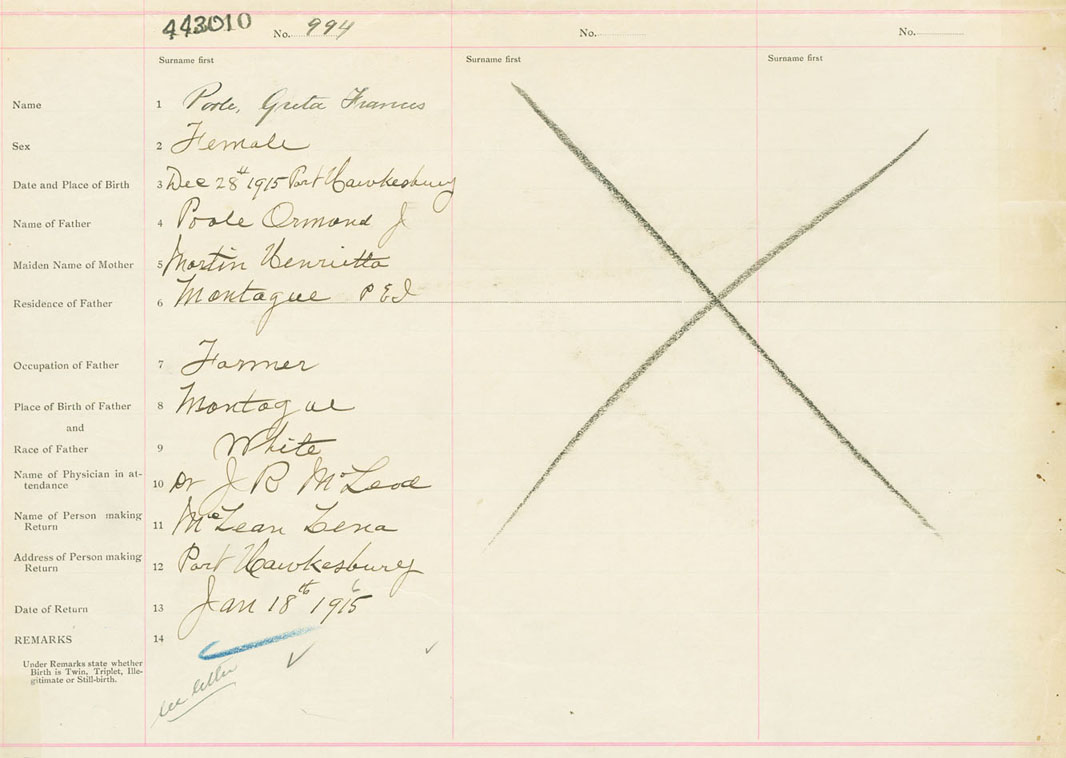 443010 No. 994 No. No.
Surname first Surname first Surname first
Name 1 Poole, Greta Frances
Sex 2 Female
Date and Place of Birth 3 Dec 28th 1915 Port Hawkesbury
Name of Father 4 Poole Ormond J
Maiden Name of Mother 5 Martin Henrietta
Residence of Father 6 Montague P E I
Occupation of Father 7 Farmer
Place of Birth of Father 8 Montague
and
Race of Father 9 White
Name of Physician in at-
tendance 10 Dr J R McLeod
Name of Person making
Return 11 McLean Lena
Address of Person making
Return 12 Port Hawkesbury
Date of Return 13 Jan 18th 1915 6
REMARKS 14
Under Remarks state whether
Birth is Twin, Triplet, Ille-
gitimate or Still-birth.
see letter